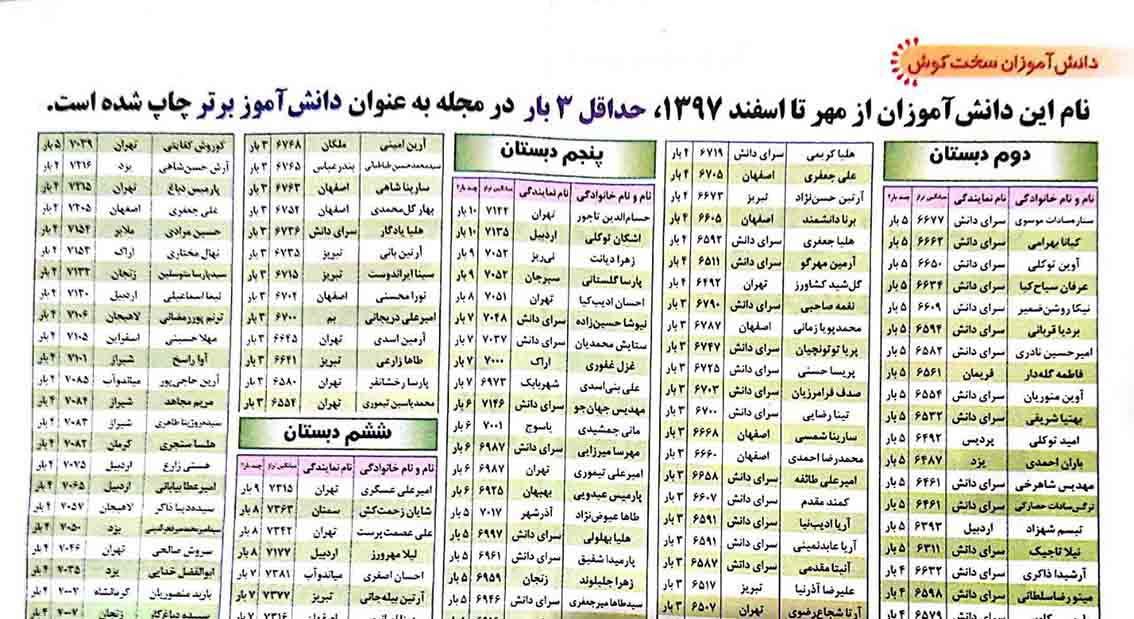 دانش‌آموزان سخت‌کوش
نام این دانش‌آموزان از مهر تا اسفند ۱۳۹۷، حداقل ۳ بار در مجله به عنوان دانش‌آموز برتر چاپ شده است.
دوم دبستان
نام و نام خانوادگی نام نمایندگی میانگین تراز چند بار؟
ستاره‌سادات موسوی سرای دانش ۶۶۷۷ ۵ بار
کیانا بهرامی سرای دانش ۶۶۶۲ ۵ بار
آوین توکلی سرای دانش ۶۶۵۰ ۵ بار
عرفان سیاح‌کیا سرای دانش ۶۶۳۴ ۵ بار
نیکا روشن‌ضمیر سرای دانش ۶۶۰۹ ۵ بار
بردیا قربانی سرای دانش ۶۵۹۴ ۵ بار
امیرحسین نادری سرای دانش ۶۵۸۲ ۵ بار
فاطمه گله‌دار فریمان ۶۵۶۱ ۵ بار
آوین منوریان سرای دانش ۶۵۵۴ ۵ بار
بهتیا شریفی سرای دانش ۶۵۳۲ ۵ بار
امید توکلی پردیس ۶۴۹۲ ۵ بار
باران احمدی یزد ۶۴۸۷ ۵ بار
مهدیس شاهرخی سرای دانش ۶۴۶۱ ۵ بار
نرگس‌سادات حصارکی سرای دانش ۶۴۶۱ ۵ بار
تبسم شهزاد اردبیل ۶۳۹۳ ۵ بار
نیلا تاجیک سرای دانش ۶۳۱۱ ۵ بار
آرشیدا ذاکری سرای دانش ۶۶۳۲ ۴ بار
میتورضا سلطانی سرای دانش ۶۵۹۸ ۴ بار
سرای دانش ۶۵۷۹ ۴ بار
هلیا کریمی سرای دانش ۶۷۱۹ ۴ بار
علی جعفری اصفهان ۶۷۰۵ ۴ بار
آرتین حسن‌نژاد تبریز ۶۶۷۳ ۴ بار
برنا دانشمند اصفهان ۶۶۰۵ ۴ بار
هلیا جعفری سرای دانش ۶۵۹۲ ۴ بار
آرمین مهرگو سرای دانش ۶۵۱۱ ۴ بار
گل‌شید کشاورز تهران ۶۴۹۲ ۴ بار
نغمه صاحبی سرای دانش ۶۷۹۰ ۳ بار
محمدپویا زمانی اصفهان ۶۷۸۷ ۳ بار
پریا توتونچیان سرای دانش ۶۷۴۷ ۳ بار
پریسا حسنی سرای دانش ۶۷۲۵ ۳ بار
صدف فرامرزیان سرای دانش ۶۷۰۳ ۳ بار
تینا رضایی سرای دانش ۶۷۰۰ ۳ بار
سارینا شمسی اصفهان ۶۶۶۸ ۳ بار
محمدرضا احمدی اصفهان ۶۶۶۰ ۳ بار
امیرعلی طائفه سرای دانش ۶۶۵۸ ۳ بار
کمند مقدم سرای دانش ۶۶۰۷ ۳ بار
آریا ادیب‌نیا سرای دانش ۶۵۹۱ ۳ بار
آریا عابدنمینی سرای دانش ۶۵۹۱ ۳ بار
آنیتا مقدمی سرای دانش ۶۵۸۷ ۳ بار
علیرضا آذرنیا تبریز ۶۵۱۷ ۳ بار
آرتا شجاع‌رضوی تهران ۶۵۰۷ ۳ بار
پنجم دبستان
نام و نام خانوادگی نام نمایندگی میانگین تراز چند بار؟
حسام‌الدین تاجور تهران ۷۱۲۲ ۱۰ بار
اشکان توکلی اردبیل ۷۱۳۵ ۱۰ بار
زهرا دیانت نی‌ریز ۷۰۵۲ ۹ بار
پارسا گلستانی سیرجان ۷۰۵۲ ۹ بار
احسان ادیب‌کیا تهران ۷۰۵۱ ۸ بار
نیوشا حسین‌زاده سرای دانش ۷۰۴۸ ۷ بار
ستایش محمدیان سرای دانش ۷۰۳۷ ۷ بار
غزل غفوری اراک ۷۰۰۰ ۷ بار
علی بنی‌اسدی شهربابک ۶۹۷۳ ۷ بار
مهدیس جهان‌جو سرای دانش ۷۱۴۶ ۶ بار
مانی جمشیدی یاسوج ۷۰۰۱ ۶ بار
مهرسا میرزایی سرای دانش ۶۹۸۷ ۶ بار
امیرعلی تیموری تهران ۶۹۸۷ ۶ بار
پارمیس عیدویی بهبهان ۶۹۲۵ ۶ بار
طاها عیوض‌نژاد آذرشهر ۷۰۱۷ ۵ بار
هلیا بهلولی سرای دانش ۶۹۹۷ ۵ بار
پارمیدا شفیق سرای دانش ۶۹۶۱ ۵ بار
زهرا جلیلوند زنجان ۶۹۵۹ ۵ بار
سیدطاها میرجعفری سرای دانش ۶۹۴۶ ۵ بار
آرین امینی ملکان ۶۷۶۸ ۳ بار
سیدمحمدحسین طباطبائی بندرعباس ۶۷۶۵ ۳ بار
سارینا شاهی اصفهان ۶۷۶۳ ۳ بار
بهار گل‌محمدی اصفهان ۶۷۵۲ ۳ بار
هلیا یادگار سرای دانش ۶۷۳۶ ۳ بار
آرتین بانی تبریز ۶۷۳۵ ۳ بار
سینا ایراندوست تبریز ۶۷۱۵ ۳ بار
نورا محسنی اصفهان ۶۷۰۲ ۳ بار
امیرعلی دریجانی بم ۶۷۰۰ ۳ بار
آرمین اسدی تهران ۶۶۴۵ ۳ بار
طاها زارعی تبریز ۶۶۴۱ ۳ بار
پارسا رخشانفر تهران ۶۵۸۰ ۳ بار
محمدیاسین تیموری تهران ۶۵۵۴ ۳ بار
ششم دبستان
نام و نام خانوادگی نام نمایندگی میانگین تراز چند بار؟
امیرعلی عسگری تهران ۷۳۱۵ ۹ بار
شایان زحمت‌کش سمنان ۷۳۶۳ ۸ بار
علی عصمت‌پرست تهران ۷۳۴۲ ۸ بار
لیلا مهرورز اردبیل ۷۱۷۷ ۸ بار
احسان اصغری میاندوآب ۷۳۸۱ ۷ بار
آرتین بیله‌جانی تبریز ۷۳۷۷ ۷ بار
اصفهان ۷۳۱۶ ۷ بار
کوروش کفایتی تهران ۷۰۳۹ ۵ بار
آرش حسن‌شاهی یزد ۷۲۱۶ ۴ بار
پارمیس دباغ تهران ۷۲۱۵ ۴ بار
علی جعفری اصفهان ۷۲۰۵ ۴ بار
حسین مرادی ملایر ۷۱۵۴ ۴ بار
نهال مختاری اراک ۷۱۵۳ ۴ بار
سیدپارسا متوسلین زنجان ۷۱۳۲ ۴ بار
نیما اسماعیلی اردبیل ۷۱۳۰ ۴ بار
ترنم پوررمضانی لاهیجان ۷۱۰۶ ۴ بار
مهلا حسینی اسفراین ۷۱۰۵ ۴ بار
آوا راسخ شیراز ۷۱۰۱ ۴ بار
آرین حاجی‌پور میاندوآب ۷۰۸۵ ۴ بار
مریم مجاهد شیراز ۷۰۸۴ ۴ بار
سیده‌مروژینا طاهری شیراز ۷۰۸۳ ۴ بار
هلسا سنجری کرمان ۷۰۸۲ ۴ بار
هستی زارع اردبیل ۷۰۷۵ ۴ بار
امیرعطا بیابانی اردبیل ۷۰۶۵ ۴ بار
سیده‌دینا ذاکر لاهیجان ۷۰۵۷ ۴ بار
یزد ۷۰۵۰ ۴ بار
سروش صالحی تهران ۷۰۴۶ ۴ بار
ابوالفضل خدایی یزد ۷۰۳۵ ۴ بار
باربد منصوریان کرمانشاه ۷۰۰۲ ۴ بار
سپیده دباغ‌کار زنجان ۷۰۰۷ ۴ بار